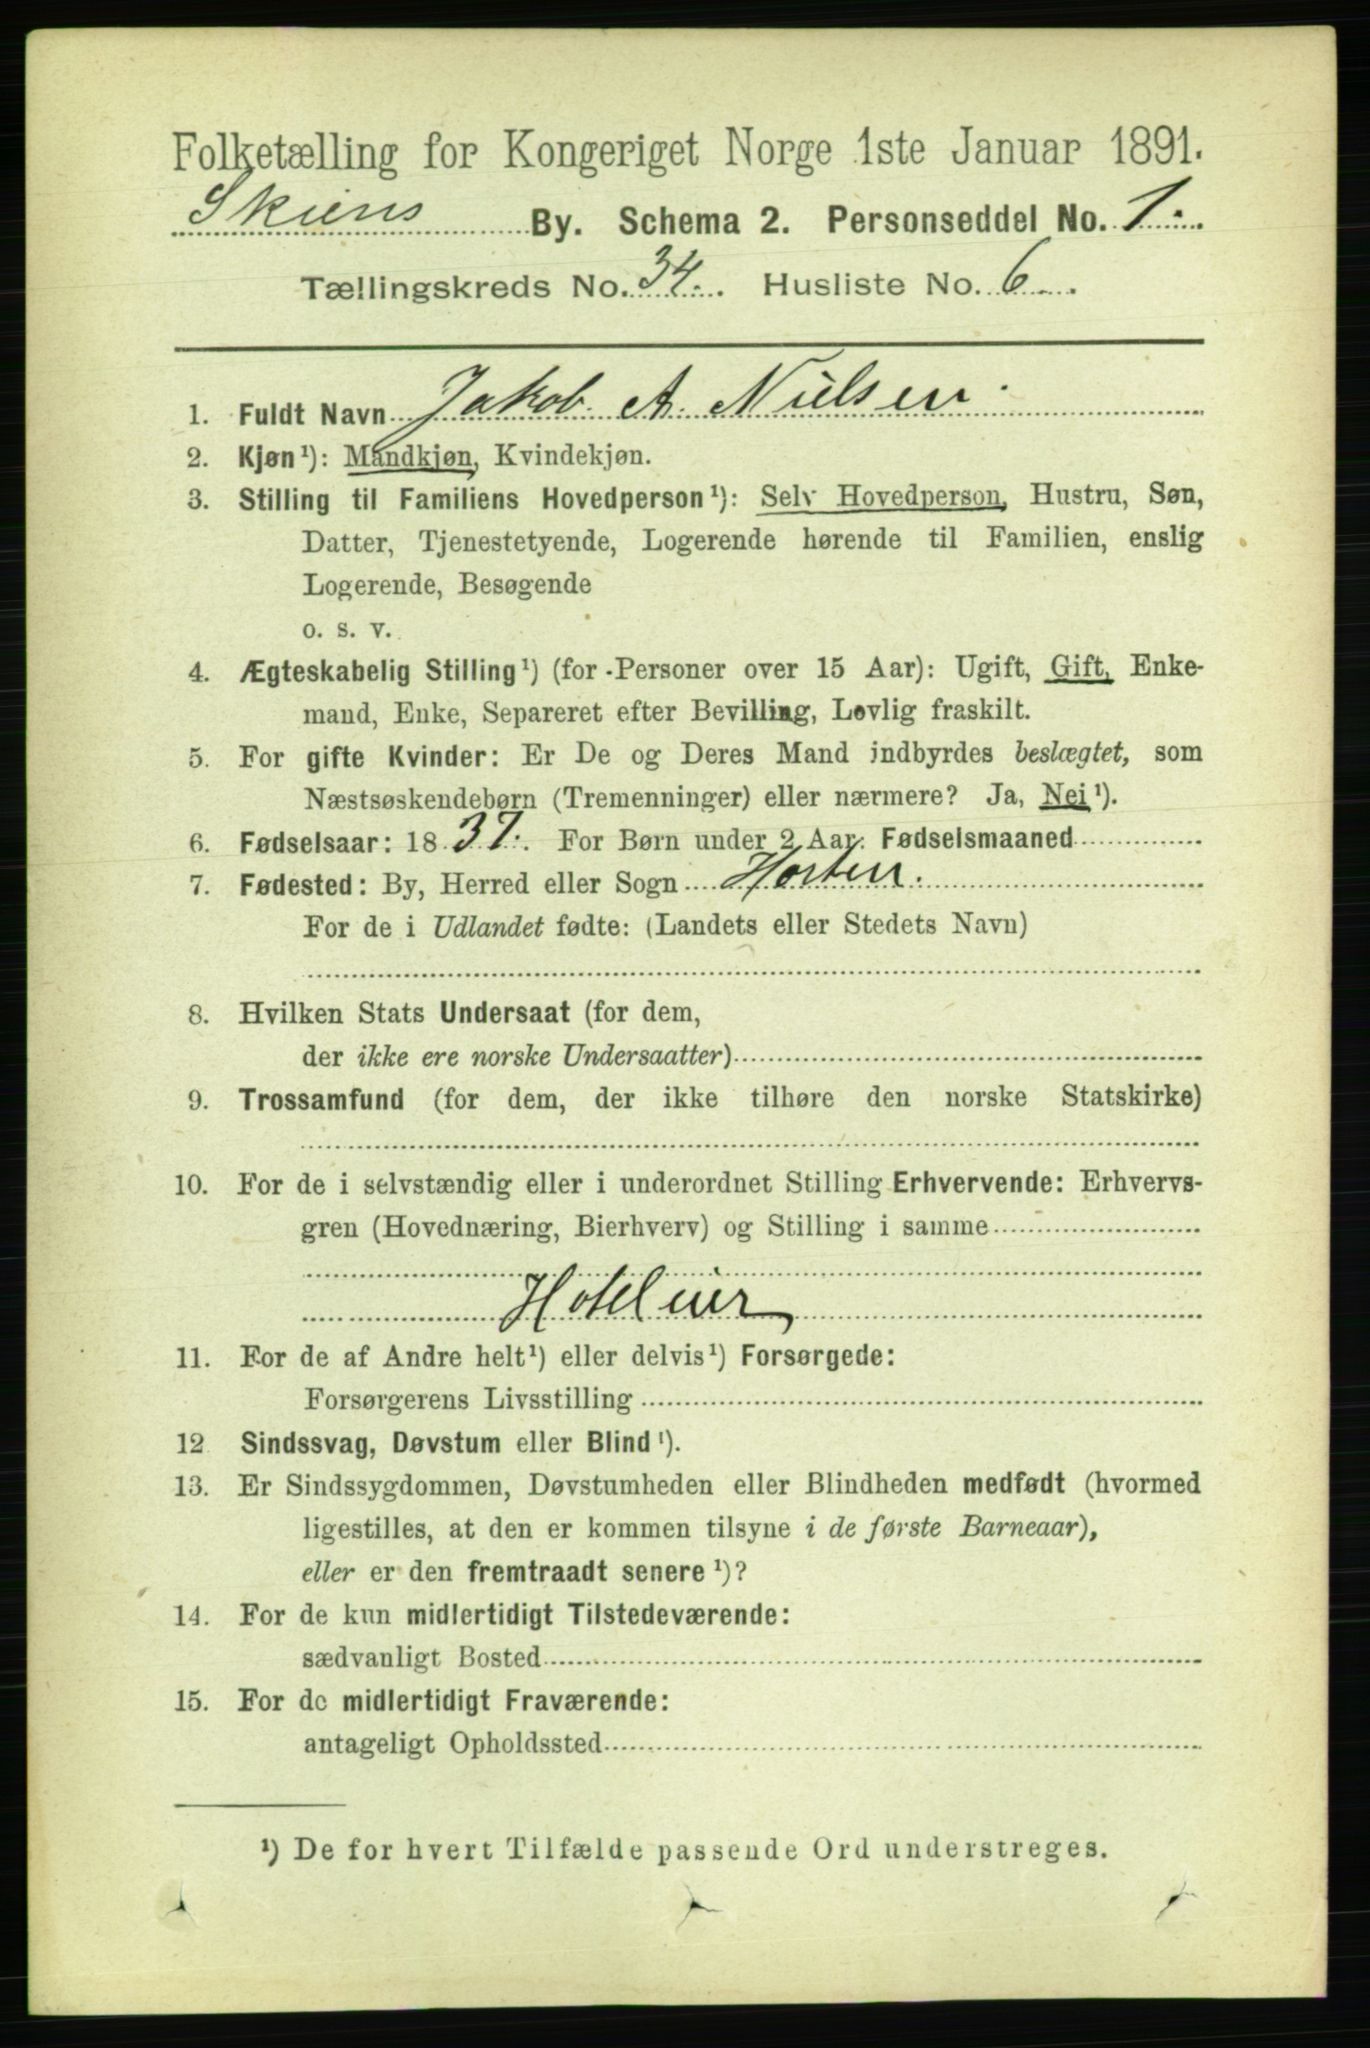 Folketælling for Kongeriget Norge 1ste Januar 1891.
Skiens By. Schema 2. Personseddel No. 1.
Tællingskreds No. 34. Husliste No. 6
1. Fuldt Navn Jakob A. Nielsen
2. Kjøn¹): Mandkjøn, Kvindekjøn.
3. Stilling til Familiens Hovedperson¹): Selv Hovedperson, Hustru, Søn,
Datter, Tjenestetyende, Logerende hørende til Familien, enslig
Logerende, Besøgende
o. s. v.
4. Ægteskabelig Stilling¹) (for Personer over 15 Aar): Ugift, Gift, Enke-
mand, Enke, Separeret efter Bevilling, Lovlig fraskilt.
5. For gifte Kvinder: Er De og Deres Mand indbyrdes beslægtet, som
Næstsøskendebørn (Tremenninger) eller nærmere? Ja, Nei¹).
6. Fødselsaar: 1837. For Børn under 2 Aar: Fødselsmaaned
7. Fødested: By, Herred eller Sogn Horten.
For de i Udlandet fødte: (Landets eller Stedets Navn)
8. Hvilken Stats Undersaat (for dem,
der ikke ere norske Undersaatter)
9. Trossamfund (for dem, der ikke tilhøre den norske Statskirke)
10. For de i selvstændig eller i underordnet Stilling Erhvervende: Erhvervs-
gren (Hovednæring, Bierhverv) og Stilling i samme
Hoteleier
11. For de af Andre helt¹) eller delvis¹) Forsørgede:
Forsørgerens Livsstilling
12 Sindssvag, Døvstum eller Blind¹).
13. Er Sindssygdommen, Døvstumheden eller Blindheden medfødt (hvormed
ligestilles, at den er kommen tilsyne i de første Barneaar),
eller er den fremtraadt senere¹)?
14. For de kun midlertidigt Tilstedeværende:
sædvanligt Bosted
15. For de midlertidigt Fraværende:
antageligt Opholdssted
¹) De for hvert Tilfælde passende Ord understreges.